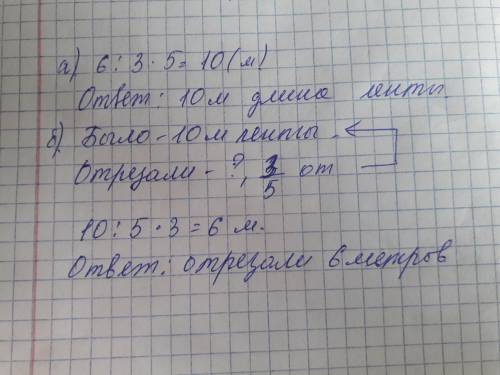 а) 6 : 3 · 5 = 10 (м)
Ответ: 10 м длина ленты.
б) Было - 10 м ленты.
Отрезали - ?, 3/5 от
10 : 5 · 3 = 6 м.
Ответ: отрезали 6 метров